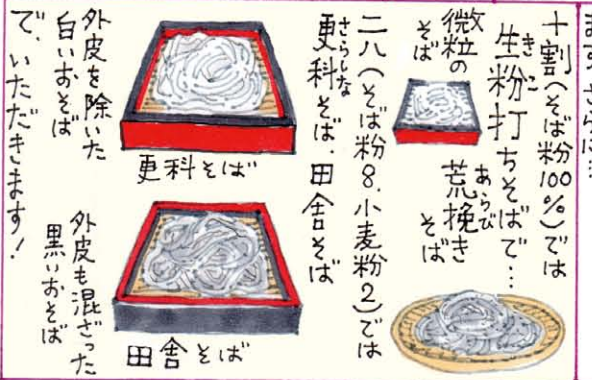 ます。さらに…
十割(そば粉100%)では
生粉打ちそばで…
きこ
微粒の
そば
荒挽き
あらび
そば
二八(そば粉8.小麦粉2)では
更科そば、田舎そば
さらしな
更科そば
外皮を除いた
白いおそば
田舎そば
外皮も混ざった
黒いおそば
で、いただきます!